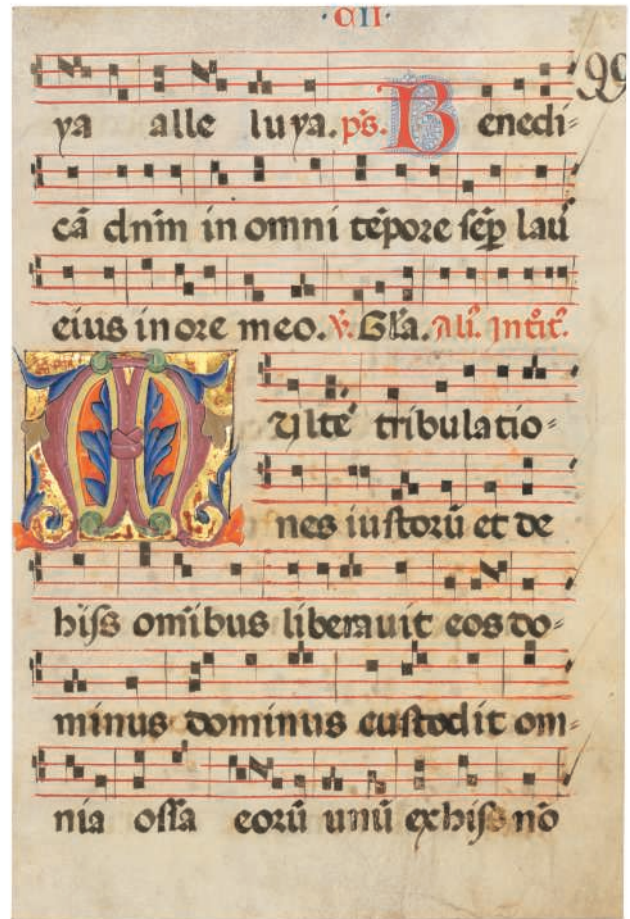 ·CII·
99
ya alle luya. ps. Benedi=
cā dnm̄ in omni tēpore sēp lau
eius in ore meo. V. Gl'a. Ali. Introit.
Multe tribulatio=
nes iustorū et de
hiis om̄ibus liberauit eos do=
minus dominus custodit om=
nia ossa eorū unū ex hiis nō